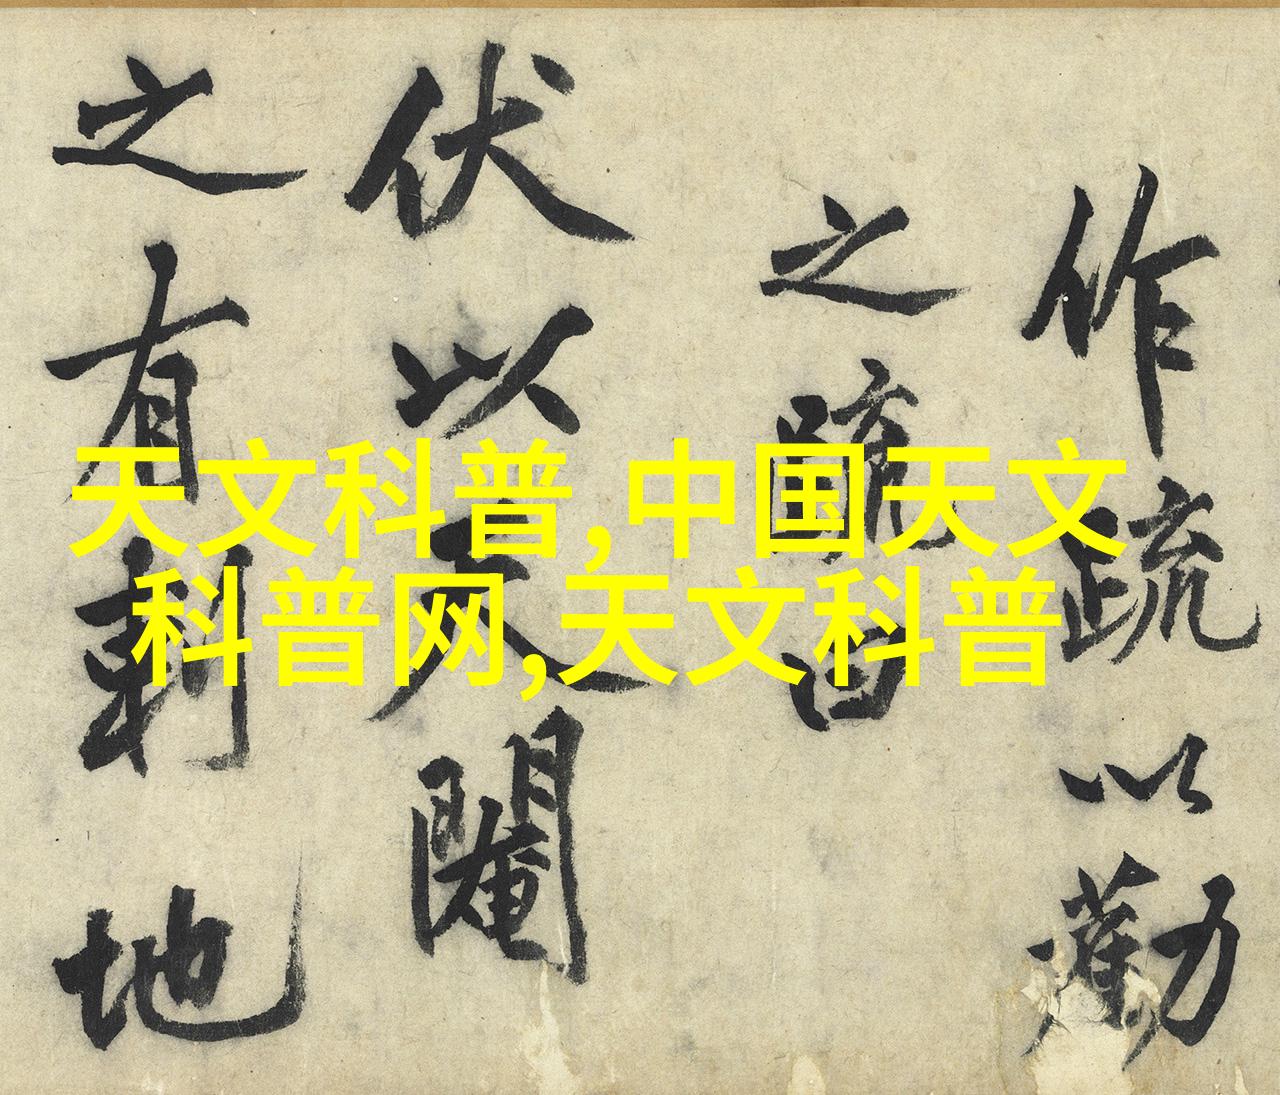 作疏以勸
之疏曰
伏以天開
之有剩地
天文科普,中国天文
科普网,天文科普